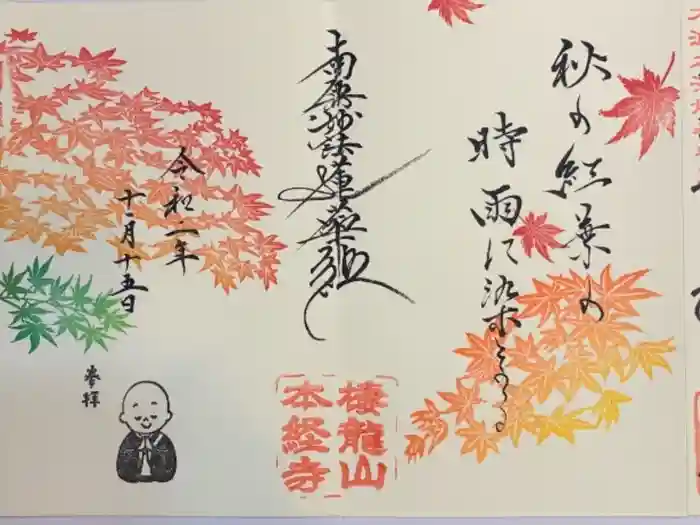 秋の紅葉の
時雨に染
南無妙法蓮華経
棲龍山
本経寺
令和二年
十一月十五日
參拝